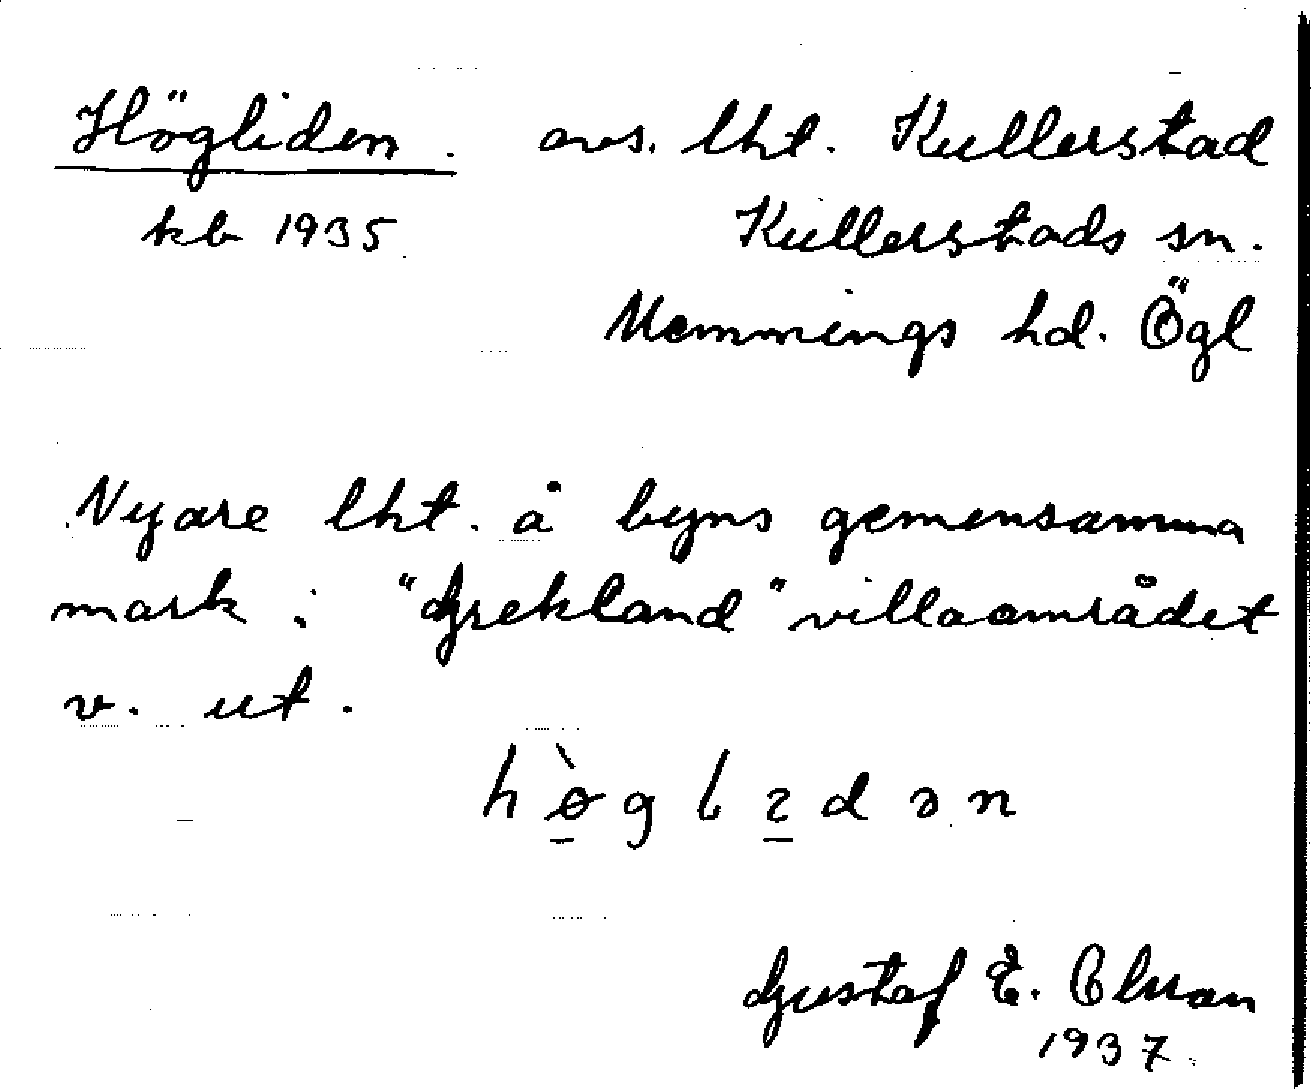 Högliden. avs. lht. Kullerstad
kb 1935 Kullerstads sn.
Memmings hd. Ögl
Nyare lht. å byns gemensamma
mark i "Grekland" villaområdet
v. ut.
hø̀glidən
Gustaf E. Olsson
1937